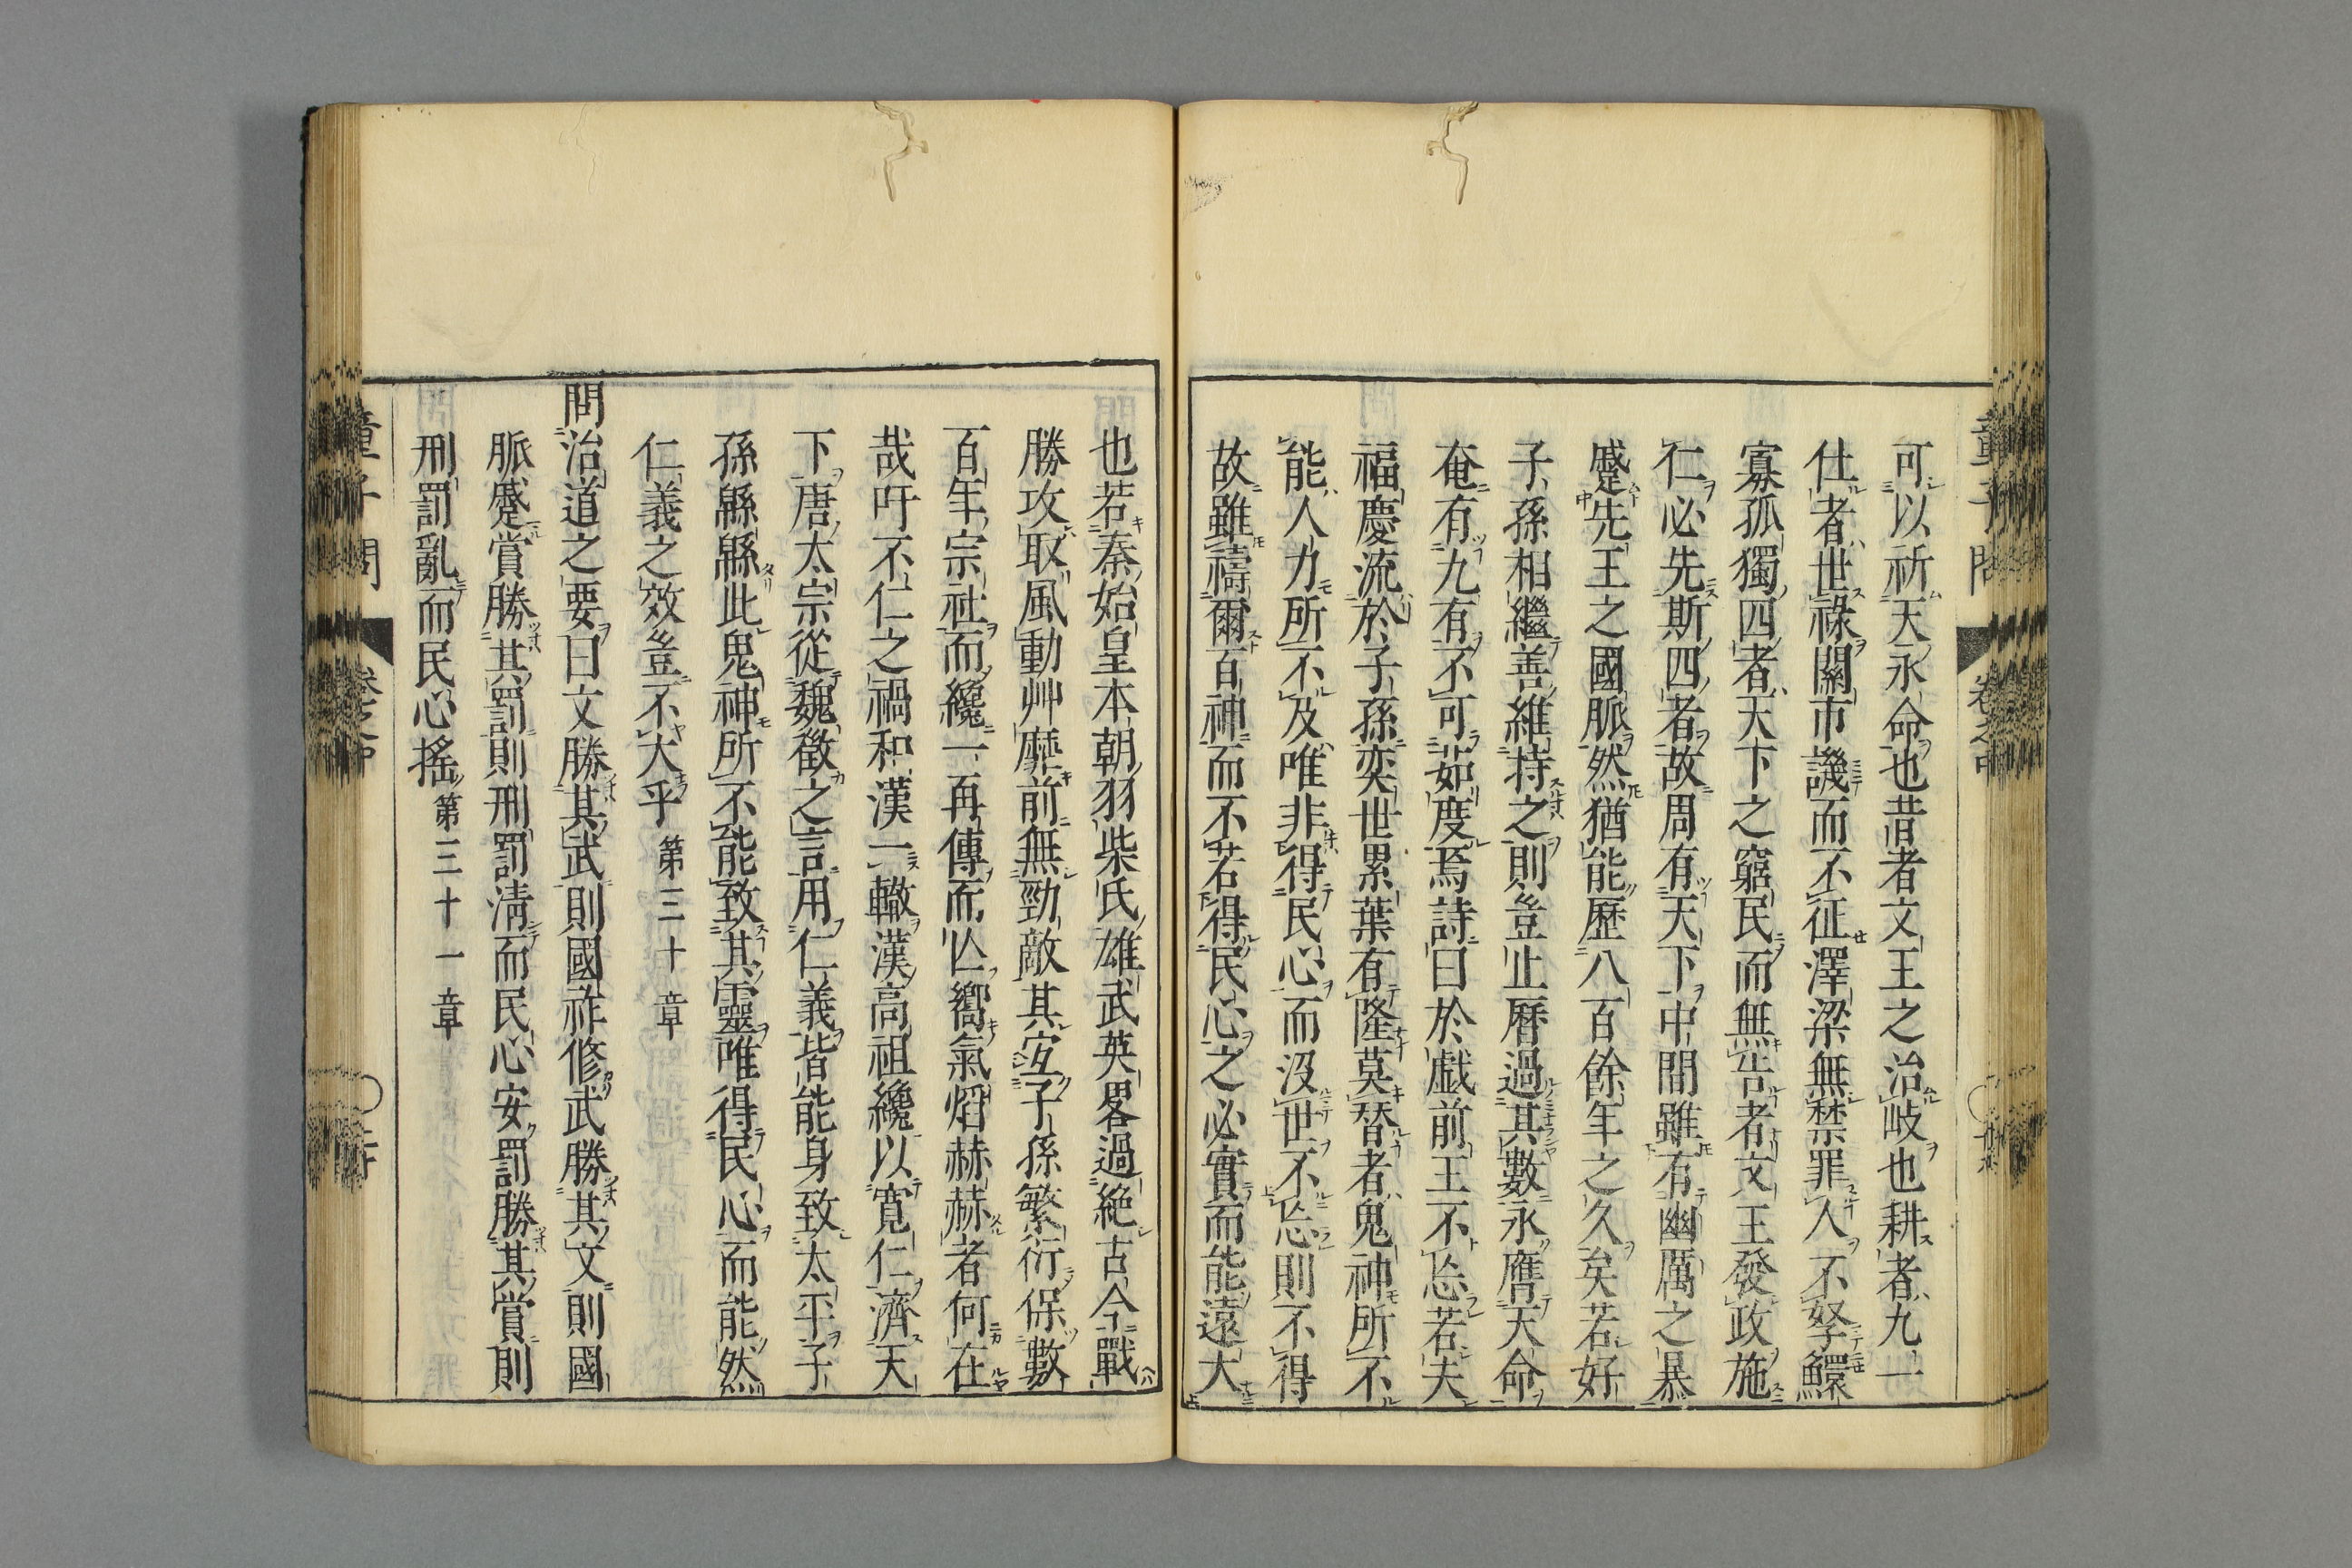 可以祈天永命也昔者文王之治岐也耕者九一
仕者世祿關市譏而不征澤梁無禁罪人不孥鰥
寡孤獨四者天下之窮民而無告者文王發政施
仁必先斯四者故周有天下中間雖有幽厲之暴
蹙先王之國脈然猶能歷八百餘年之久矣若好
子孫相繼善維持之則豈止曆過其數永膺天命
奄有九有不可茹度焉詩曰於戯前王不忘若夫
福慶流於子孫奕世累葉有隆莫替者鬼神所不
能人力所不及唯非得民心而沒世不忘則不得
故雖禱爾百神而不若得民心之必實而能遠大
也若秦始皇本朝羽柴氏雄武英畧過絶古今戰
勝攻取風動艸靡前無勁敵其宐子孫繁衍保數
百年宗社而纔一再傳而亾嚮氣焰赫赫者何在
哉吁不仁之禍和漢一轍漢高祖纔以寛仁濟天
下唐太宗從魏徵之言用仁義皆能身致太平子
孫緜緜此鬼神所不能致其靈唯得民心而能然
仁義之效豈不大乎 第三十章
問治道之要曰文勝其武則國祚修武勝其文則國
脈蹙賞勝其罰則刑罰淸而民心安罰勝其賞則
刑罰亂而民心搖 第三十一章
童子問
卷之中